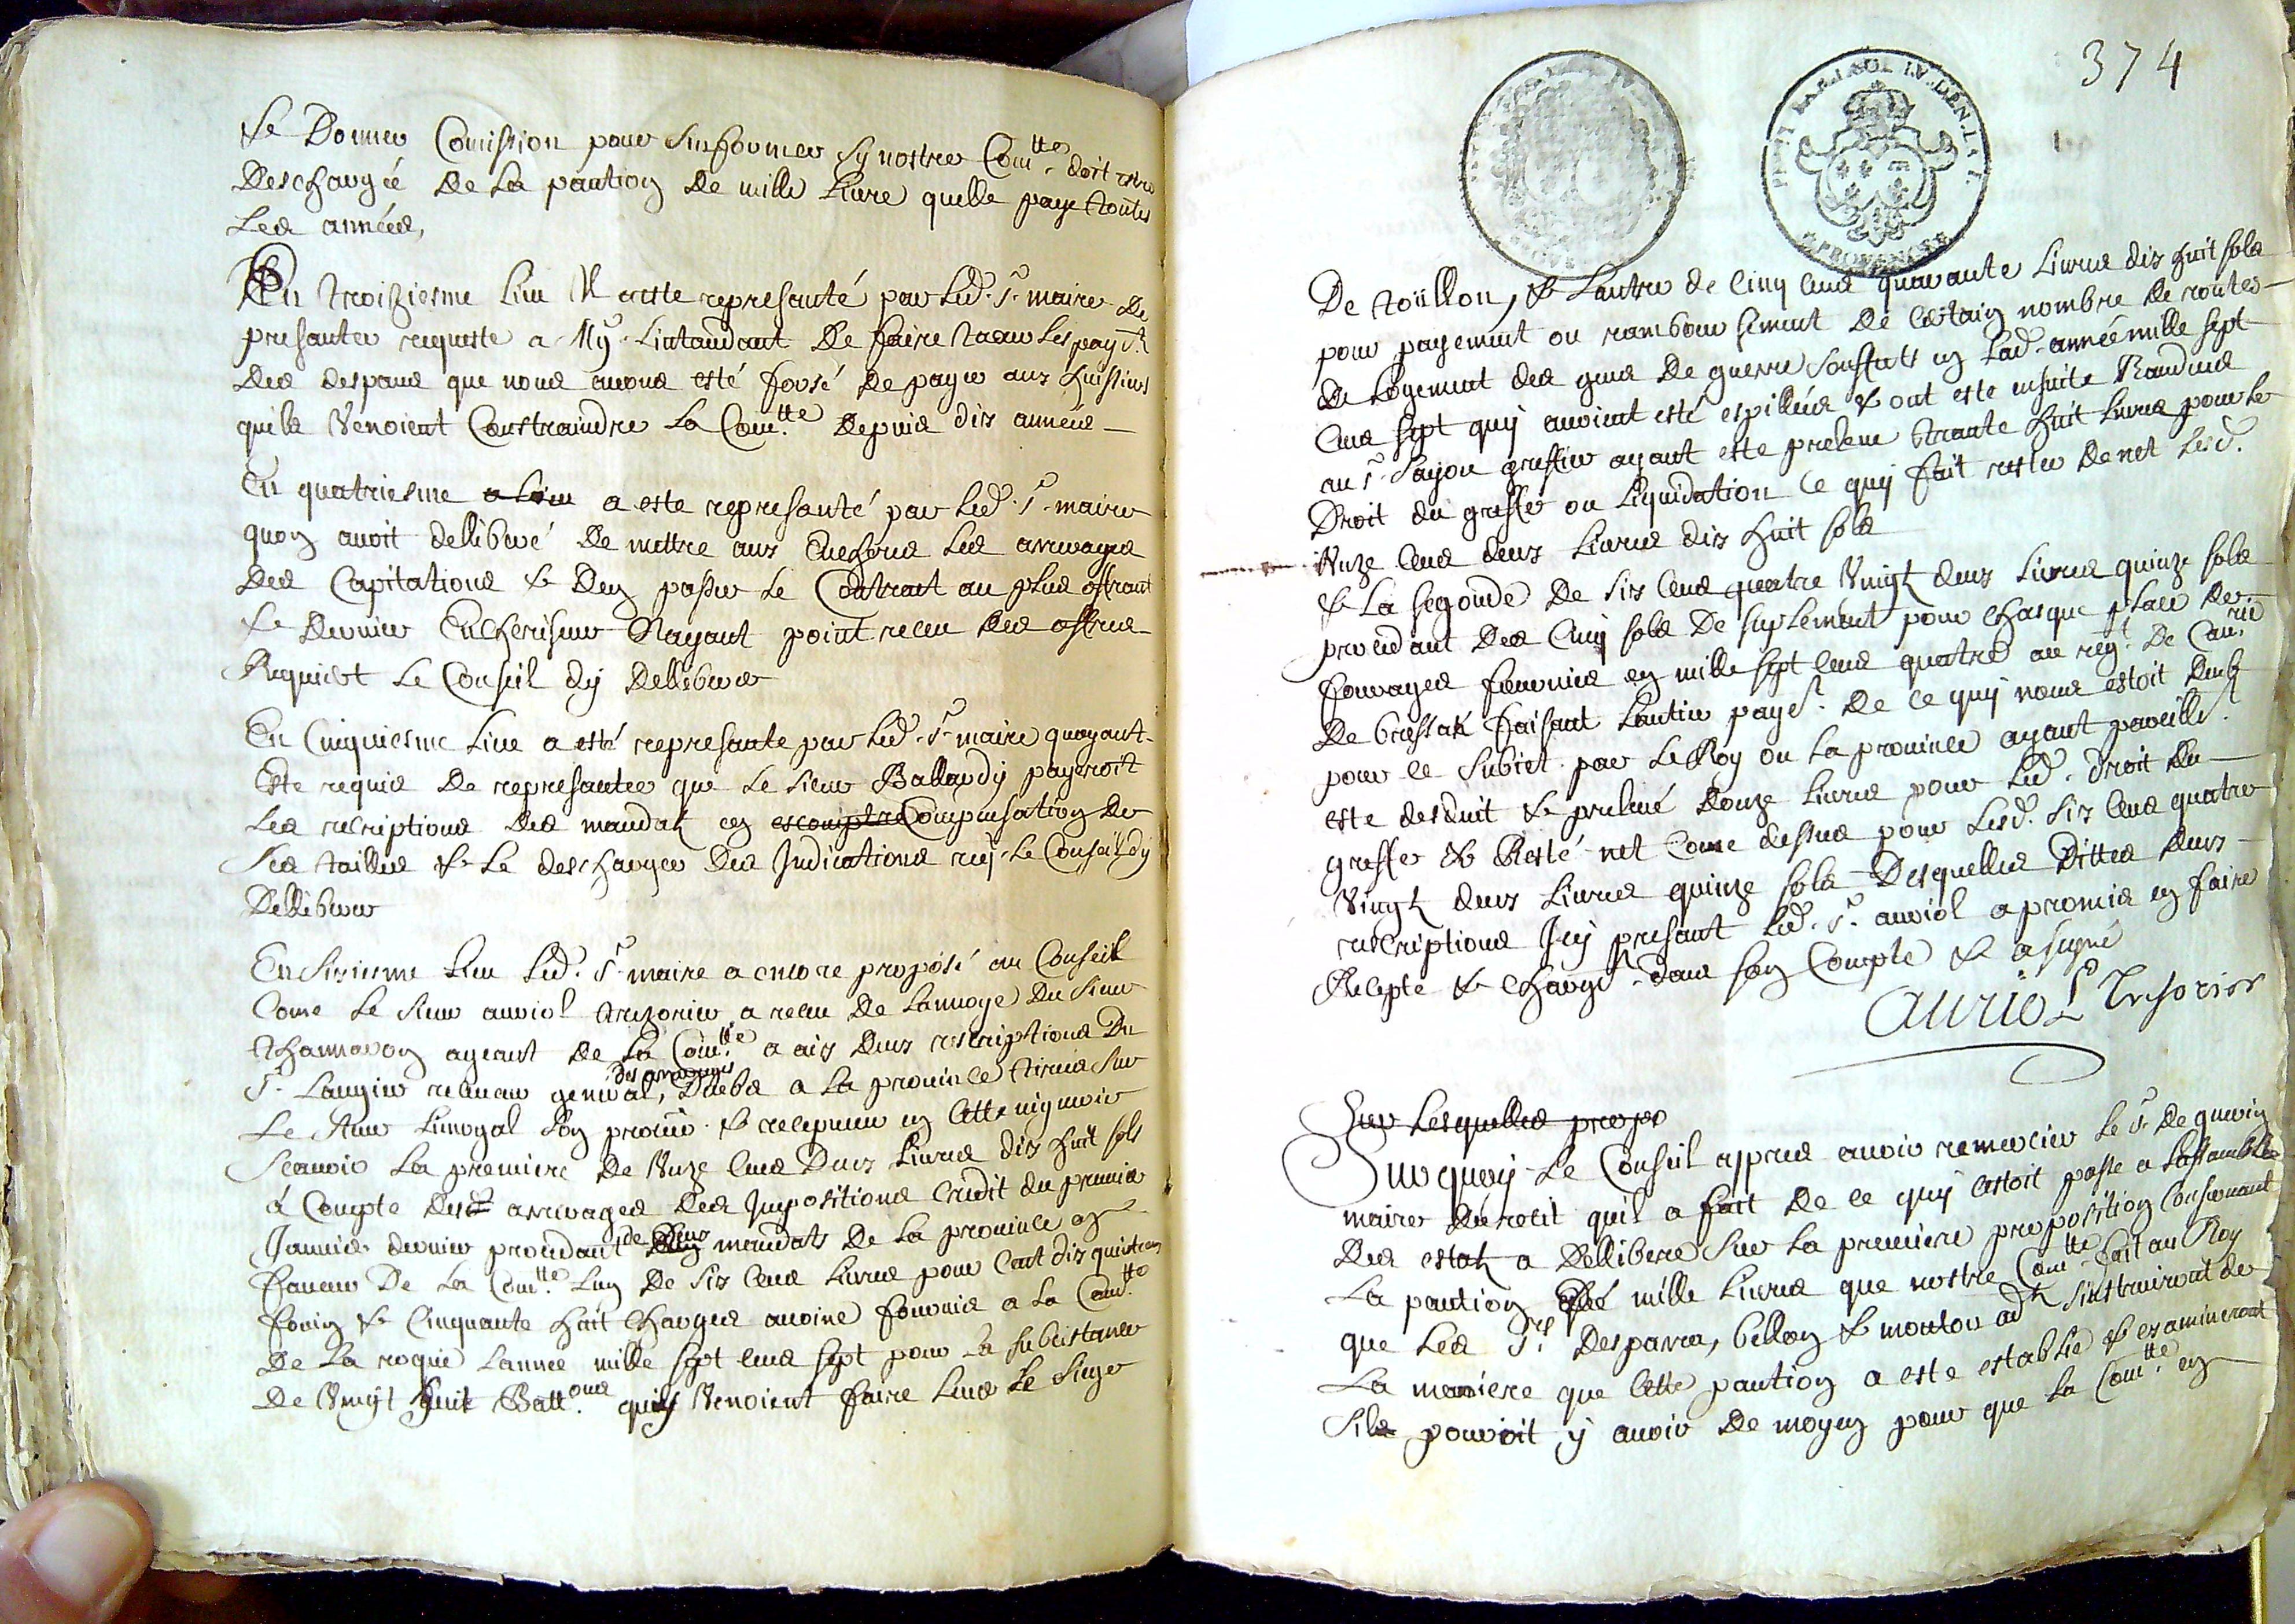 & Donner Comission pour sinformer sy nostre Com.tte doit estre
Deschargée De La pantion De mille Livre quelle paye toutes
Les années,
En troiziesme Lieu Il a este represanté par Led. Sr. maire De
presanter requeste a Mgr. Lintandant De faire
Des despans que nous avons esté forsé De payer aux huissiers
quils Venoient Constraindre La Com.tte Depuis dix années
En quatriesme a Lieu a este represanté par Led. Sr. maire
quon avoit dellibéré De mettre aux Encheres Les arrerages
Des Capitations & Den passer Le Contrat au plus offrant
& Dernier Encherisseur Nayant point receu Des offres
Requiert Le Conseil dy Delliberer
En Cinquiesme Lieu a esté represante par Led. Sr. maire quayant
Este requis De represanter que Le Sieur Ballardy payeroit
Les rescriptions Des mandats en escomptre Compensation De
Ses tailles & Le descharger Des Indications Le Conseil dy
Delliberer
En Sixiesme Lieu Led. Sr. maire a encore proposé au Conseil
Come Le Sieur auriol trezorier a receu De Lanvoye Du Sieur
Thamaron ageant De La Com.tte a aix Deux rescriptions Du
Sr. Laugier receveur general, des arrerages Deubs a La province tirées Sur
Le Sieur Limogal Son & recepveur en Cette viguerie
Scavoir La premiere De Unze Cens Deux Livres dix huit sols
à Compte Des arrerages Des Impositions Credit du premier
Janvier dernier procedant de Deux mandats De La province en
faveur De La Com.tte Lun De Six Cens Livres pour Cent dix quintaux
foin & Cinquante huit Charges avoine fournis a La Com.tte
De La roque Lannée mille sept Cens sept pour La subcistance
De Vingt huit Batt.ons quils Venoient faire Lever Le Siege
374
PROVENCE
De toullon, & Lautre de Cinq Cens quarante Livres dix huit sols
pour payement ou rambourssement De Certain nombre De routes
De Logement des gens De guerre soufferts en Lad. année mille sept
Cens sept quy avoient esté espillées & ont este ensuite Randues
au Sr. Sayon greffier ayant este prelevé trante huit Livres pour Le
Droit du greffe ou Liquidation Ce quy fait rester De net Lesd.
Unze Cens deux Livres dix huit sols
& La segonde De Six Cens quatre Vingt deux Livres quinze sols
procedant Des Cinq sols De suplement pour Chasque place De
fourages fournies en mille sept Cens quatre au regt. De Cau.rie
De Brissak faisant Lantier paye.t De Ce quy nous estoit Deub
pour Ce Subiet par Le Roy ou La province ayant pareille.t
este desduit & prelevé Douze Livres pour Led. droit Du
greffe & Resté net Come dessus pour Lesd. Six Cens quatre
Vingt deux Livres quinze sols Desquelles Dittes Deux
rescriptions Icy presant Led. Sr. auriol a promis en faire
Recepte & Charge.t dans son Compte & a signé
AURIOL Tresorier
Sur Lesquelles propo
Sur quoy Le Conseil appres avoir remercier Le Sr. De guerin
maire Du recit quil a fait De Ce quy Cestoit passe a Lassamblée
Des estats a Dellibere Sur La premiere proposition Consernant
La pantion mille Livres que nostre Com.tte fait au Roy
que Les Srs. Desparra, bellon & mouton adts. sinstruiront de
La maniere que Cette pantion a este establie & examineront
Sils pouvoit y avoir De moyen pour que La Com.tte en